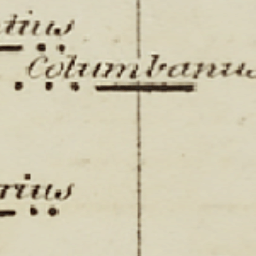 tius
Columbanus
rius